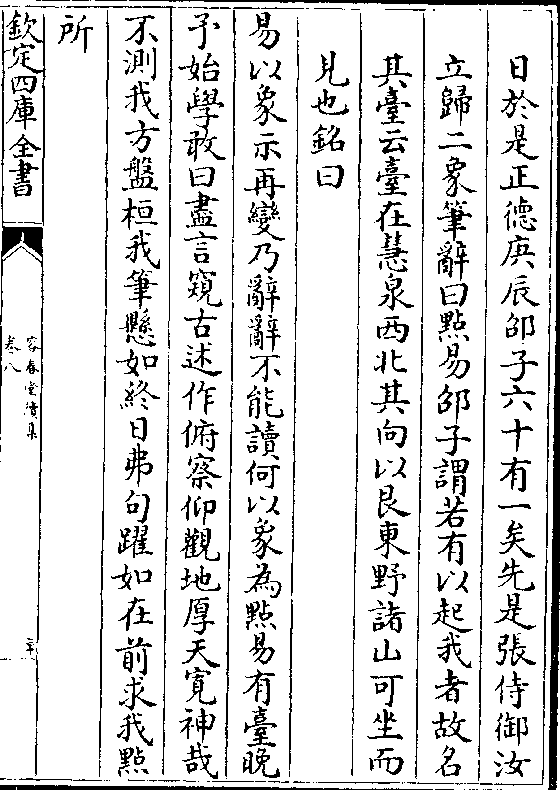 日於是正德庚辰邵子六十有一矣先是張侍御汝
立歸二象筆辭曰點易邵子謂若有以起我者故名
其臺云臺在慧泉西北其向以艮東野諸山可坐而
見也銘曰
易以象示再變乃辭辭不能讀何以象為點易有臺晚
予始學敢曰盡言窺古述作俯察仰觀地厚天寛神哉
不測我方盤桓我筆懸如終日弗句躍如在前求我點
所
欽定四庫全書
容春堂續集
卷八